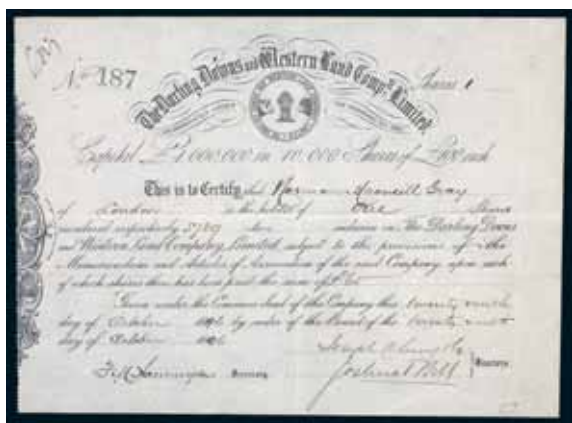 No 187
Shares 1
The Darling Downs and Western Land Compy. Limited.
Capital £1,000,000 in 10,000 Shares of £100 each
This is to Certify that Norman Gray
of London is the holder of One Share
numbered respectively inclusive in The Darling Downs
and Western Land Company, Limited, subject to the provisions of the
Memorandum and Articles of Association of the said Company, upon each
of which shares there has been paid the sum of
Given under the Common Seal of the Company this twenty
day of October by order of the Board of the twenty
day of October
Secretary
Joshua T Bell
Directors